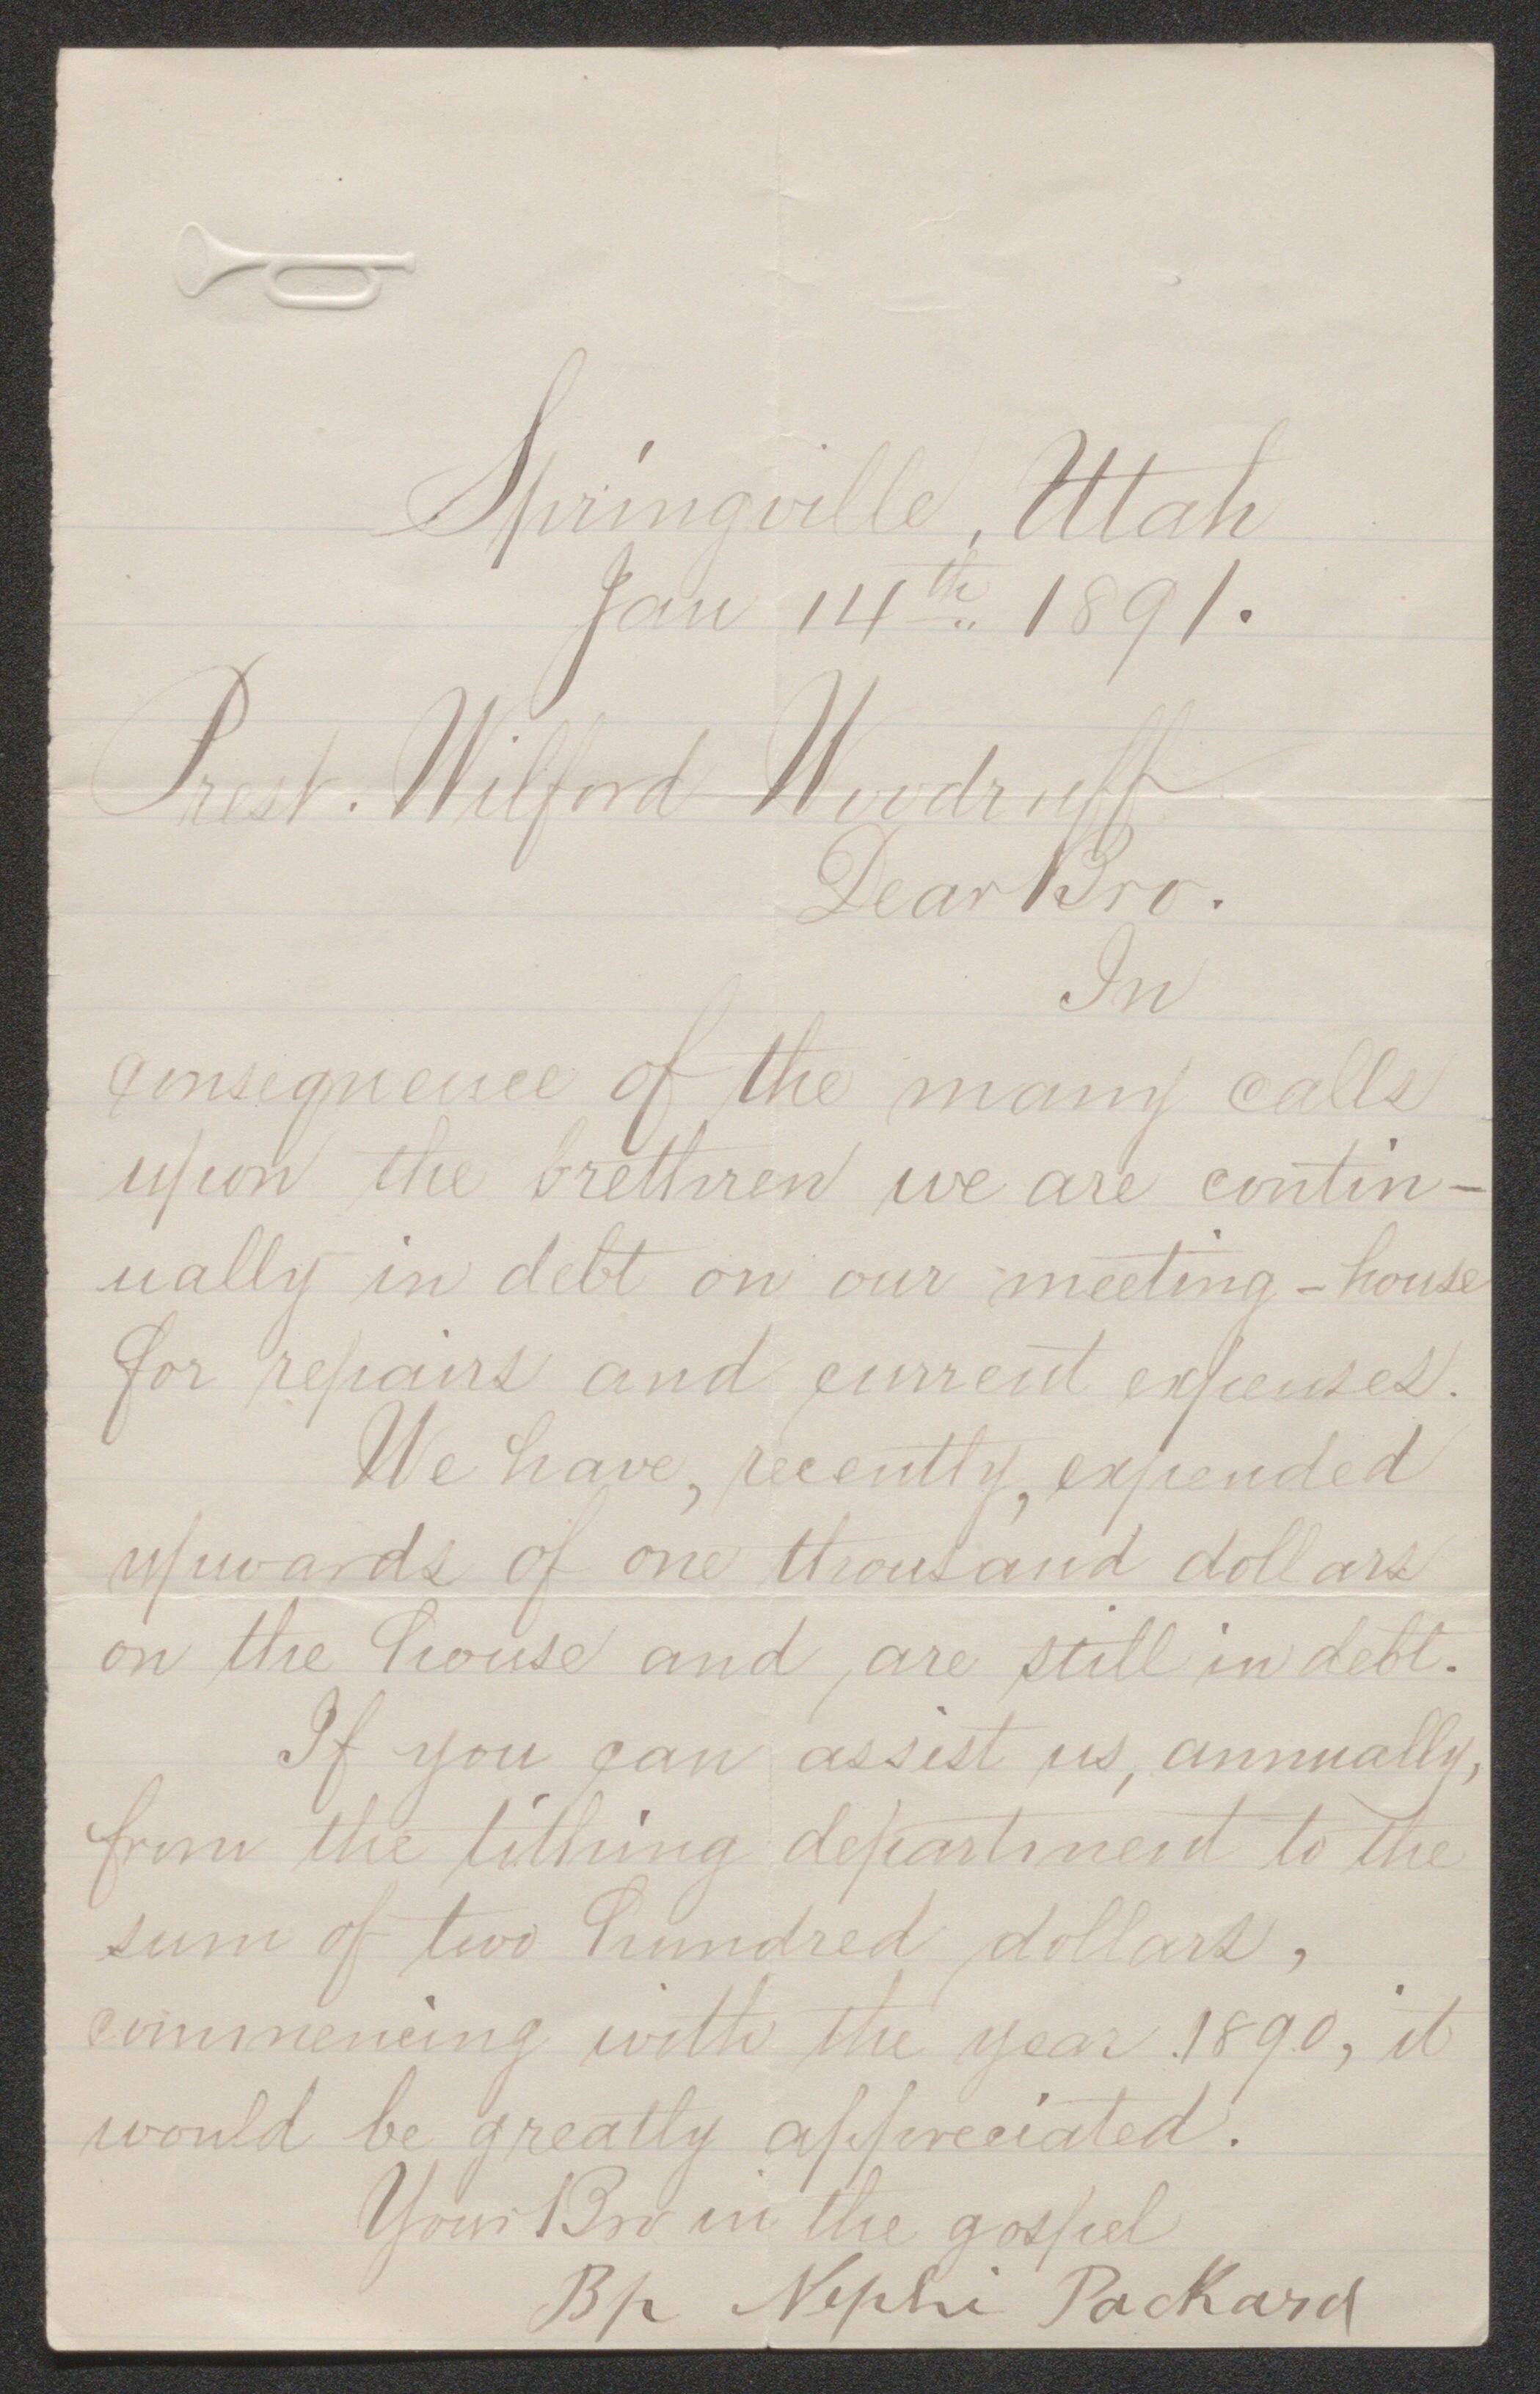 Springville, Utah
Jan 14th 1891.
Prest. Wilford Woodruff
Dear Bro.
In
consequence of the many calls
upon the brethren we are contin-
ually in debt on our meeting-house
for repairs and current expenses.
We have, recently, expended
upwards of one thousand dollars
on the house and are still in debt.
If you can assist us, annually,
from the tithing department to the
sum of two hundred dollars,
commencing with the year 1890, it
would be greatly appreciated.
Your Bro in the gospel
Bp Nephi Packard